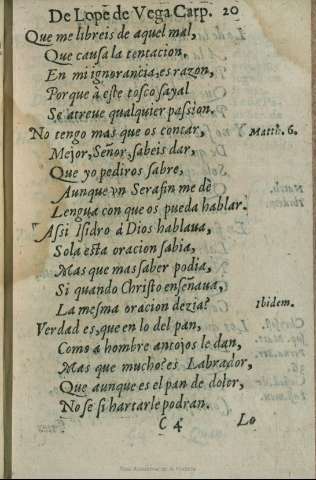 De Lope de Vega Carp. 20
Que me libreis de aquel mal,
Que causa la tentacion,
En mi ignorancia, es razon,
Porque à este tosco sayal
Se atreve qualquier passion.
No tengo mas que os contar,
Matth. 6.
Mejor, Señor, sabeis dar,
Que yo pediros sabre,
Aunque vn Serafin me dè
Lengua con que os pueda hablar.
Assi Isidro à Dios hablaua,
Sola esta oracion sabia,
Mas que mas saber podia,
Si quando Christo enseñaua,
La mesma oracion dezia?
Ibidem.
Verdad es, que en lo del pan,
Como à hombre antojos le dan,
Mas que mucho? es Labrador,
Que aunque es el pan de dolor,
No se si hartarle podran.
C 4 Lo